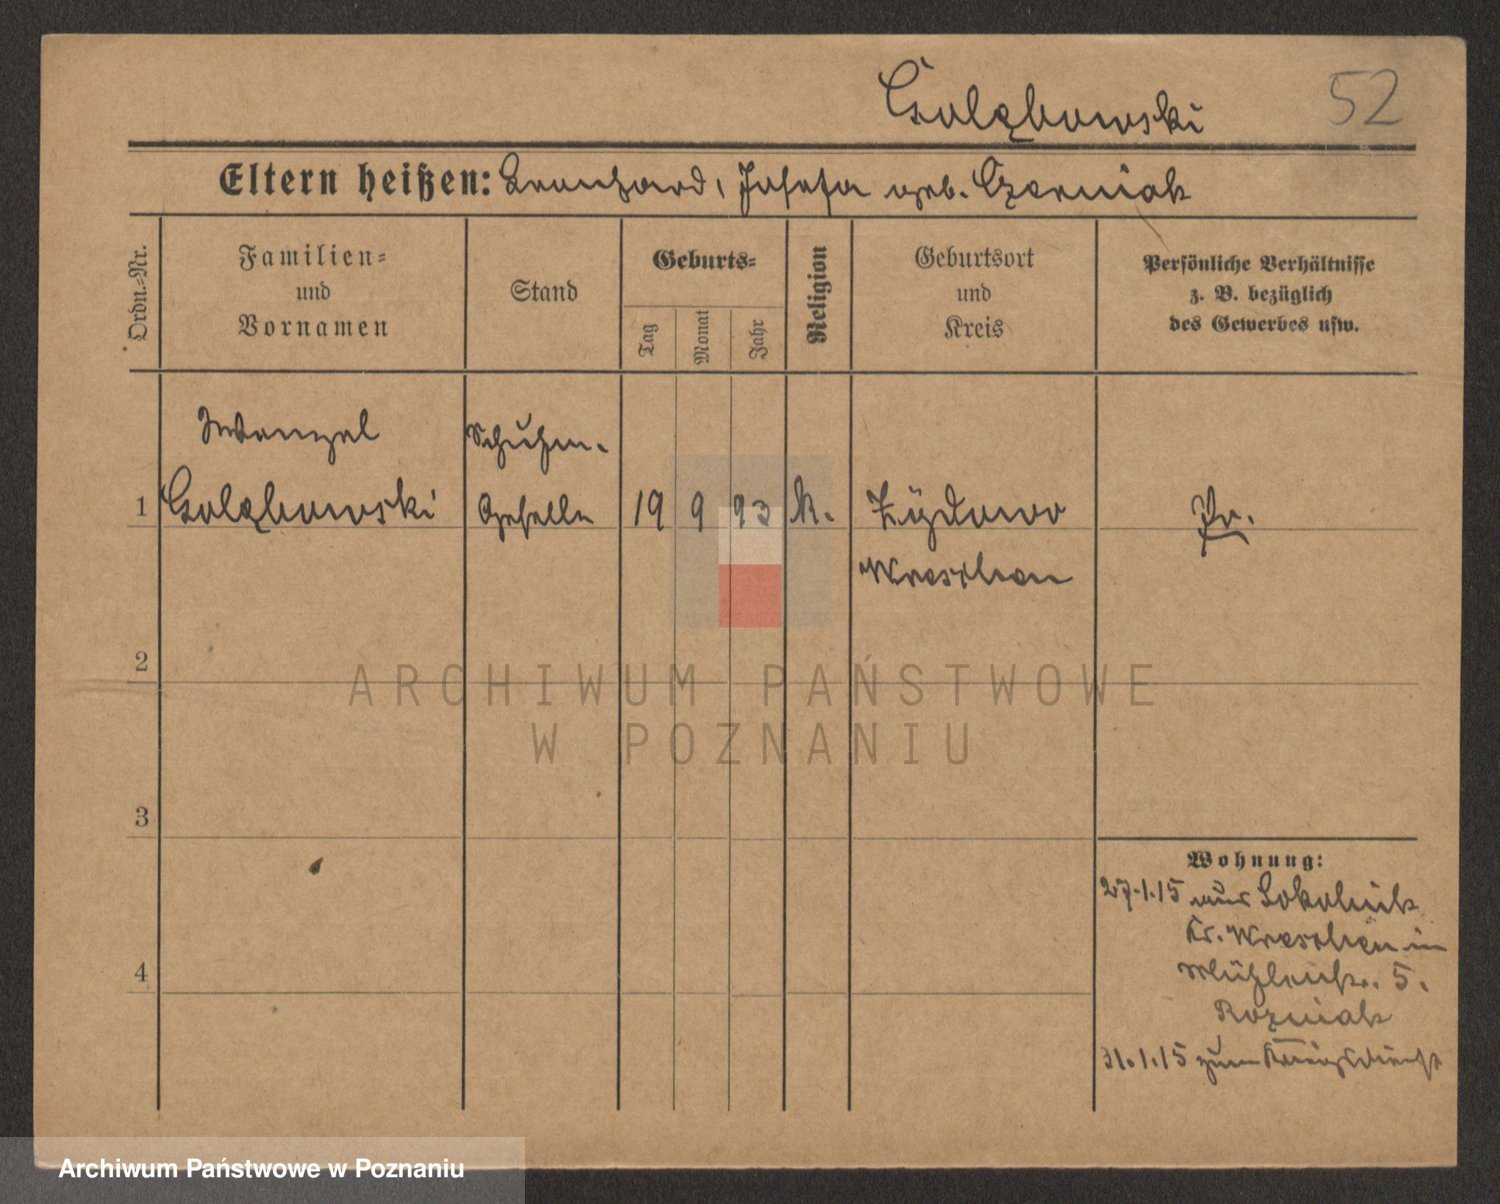 Goląbowski 52
Eltern heißen: Leonhard, Josefa geb. Czerniak
Ordn.-Nr.
Familien-
und
Vornamen
Stand
Geburts-
Tag
Monat
Jahr
Religion
Geburtsort
und
Kreis
Persönliche Verhältnisse
z. B. bezüglich
des Gewerbes usw.
Wenzel Schuhm.
1 Goląbowski Geselle 19 9 93 k. Żydowo Pr.
Wreschen
2
ARCHIWUM PAŃSTWOWE
W POZNANIU
3
Wohnung:
27.1.15 aus Sokolnik
Kr. Wreschen in
4 Mühlenstr. 5.
Rozniak
31.1.15 zum Kriegsdienst
Archiwum Państwowe w Poznaniu